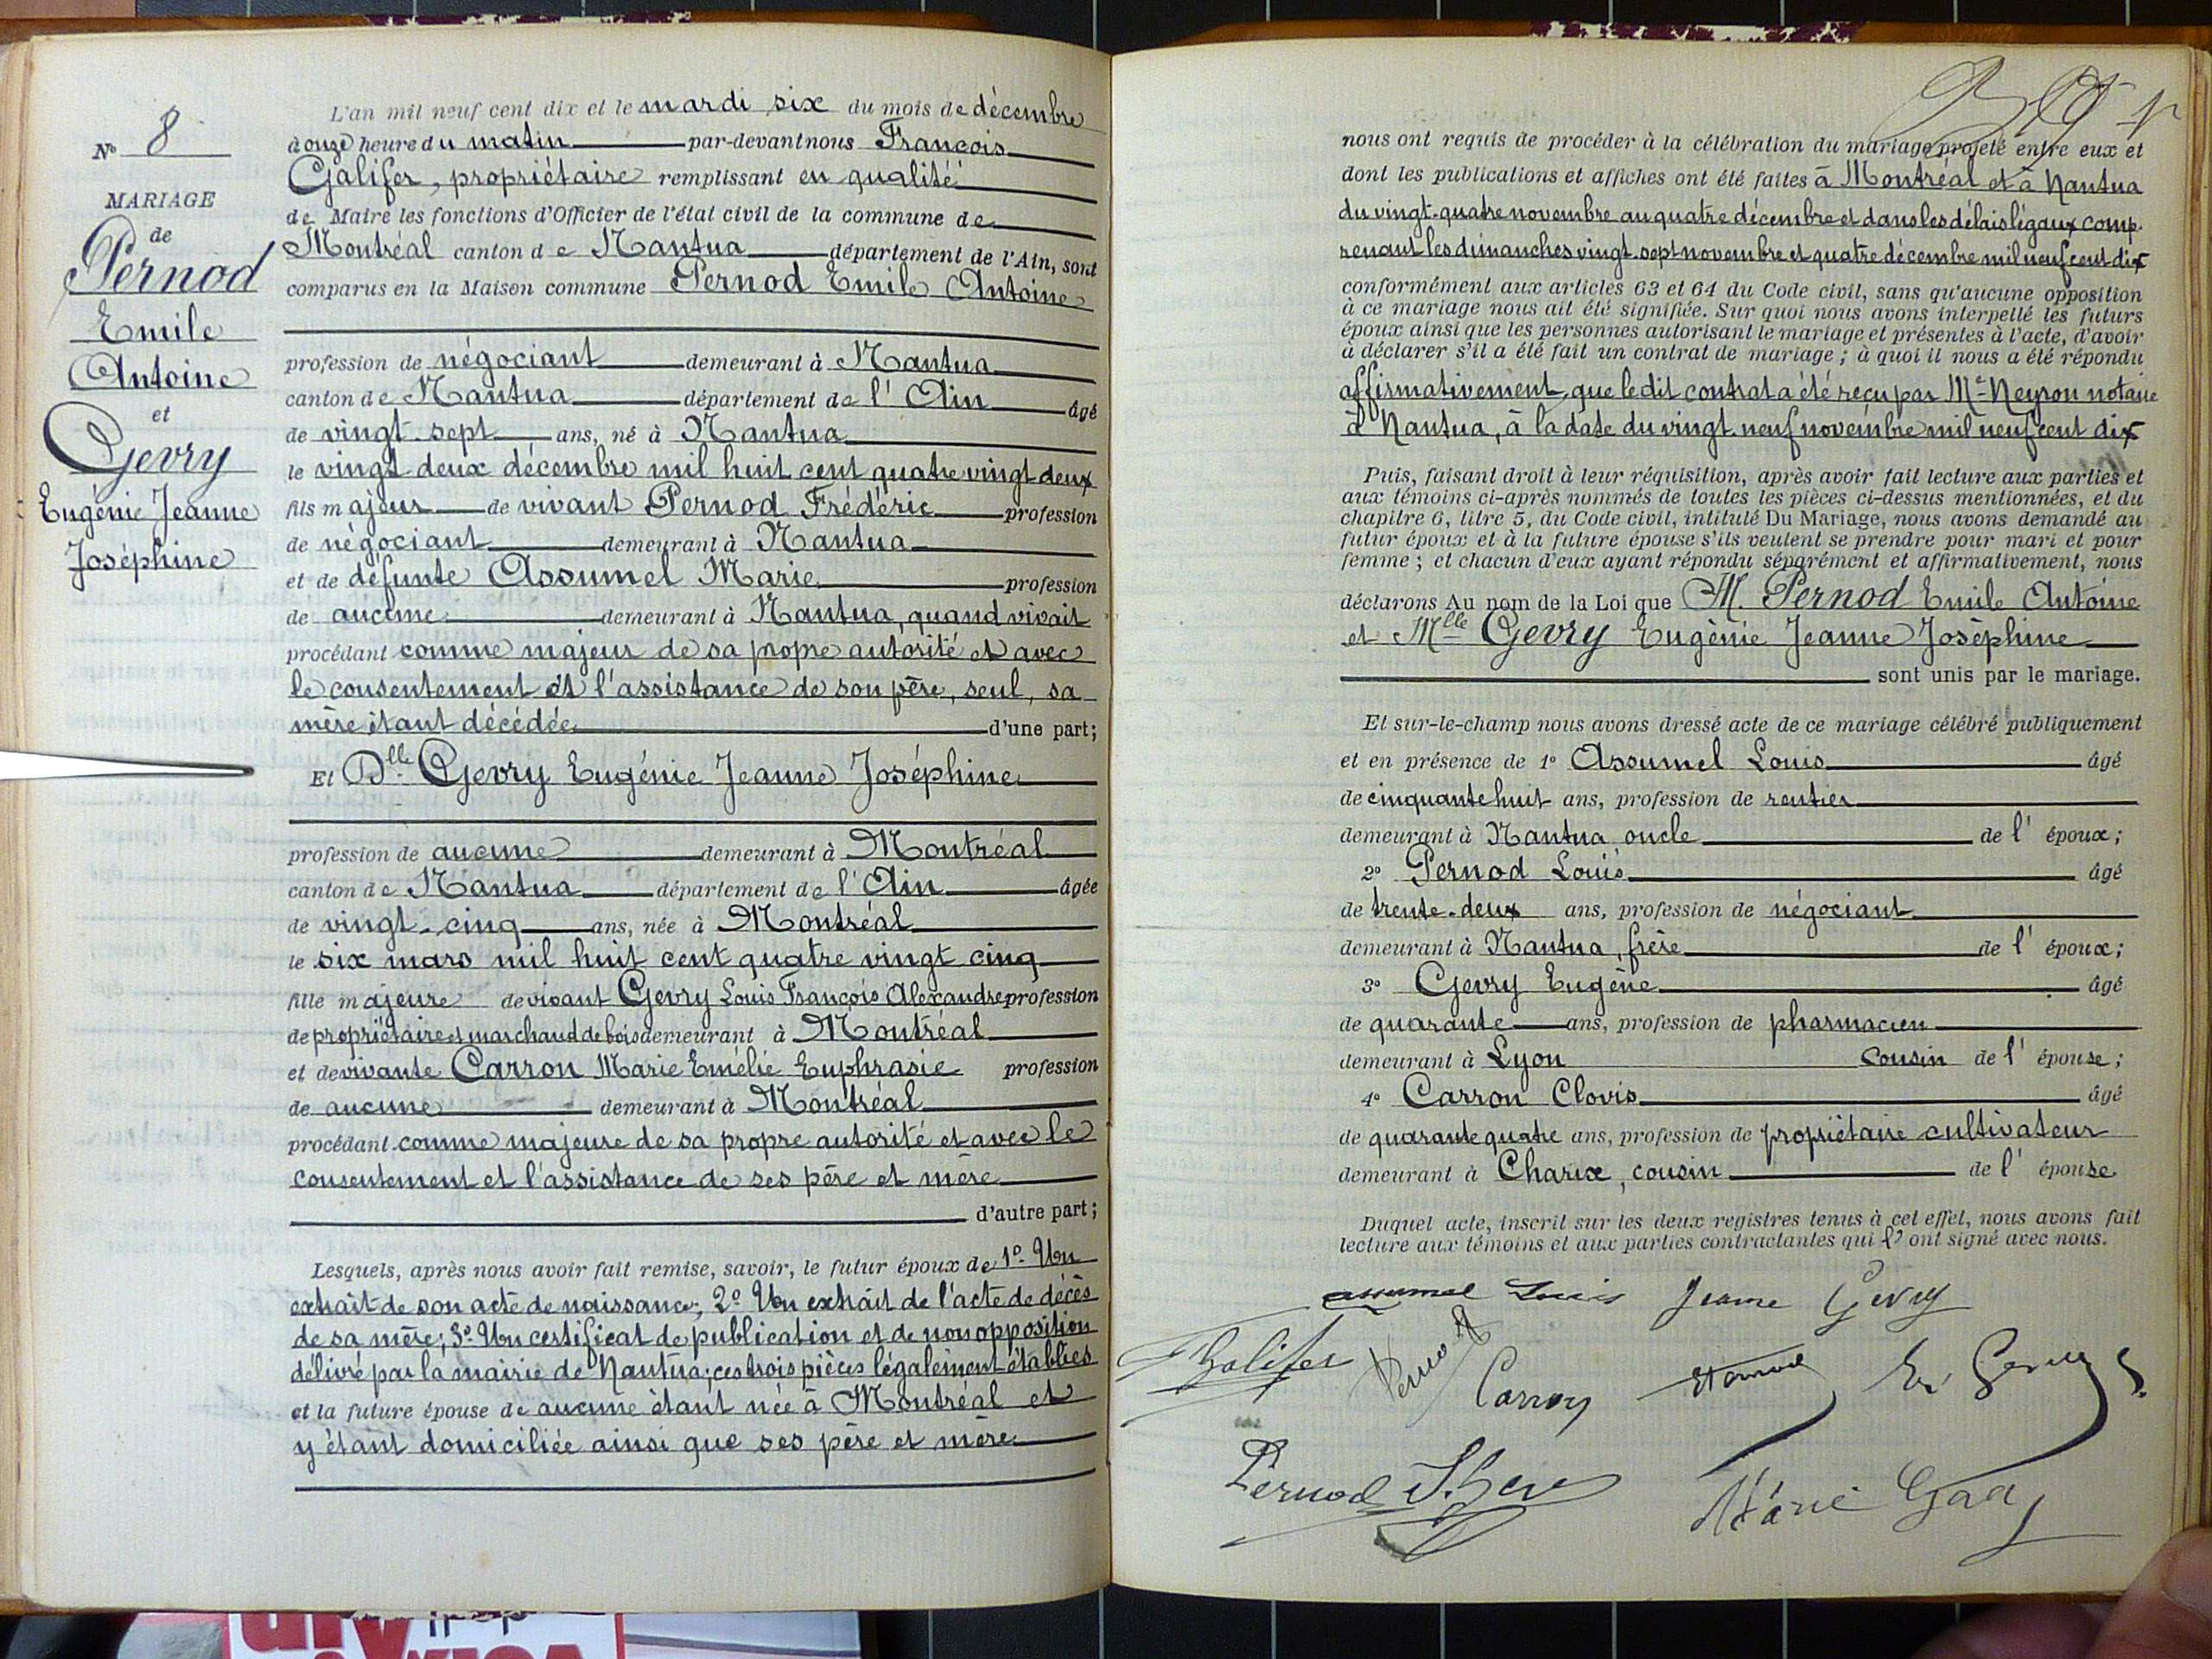 N° 8
MARIAGE
de
Pernod
Emile
Antoine
et
Gevry
Eugénie Jeanne
Joséphine
L'an mil neuf cent dix et le mardi six du mois de décembre
à onze heure du matin par-devant nous François
Galifer, propriétaire remplissant en qualité
de Maire les fonctions d'Officier de l'état civil de la commune de
Montréal canton de Nantua département de l'Ain, sont
comparus en la Maison commune Pernod Emile Antoine
profession de négociant demeurant à Nantua
canton de Nantua département de l'Ain âgé
de vingt-sept ans, né à Nantua
le vingt deux décembre mil huit cent quatre vingt deux
fils majeur de vivant Pernod Frédéric profession
de négociant demeurant à Nantua
et de défunte Assumel Marie profession
de aucune demeurant à Nantua, quand vivait
procédant comme majeur de sa propre autorité et avec
le consentement et l'assistance de son père, seul, sa
mère étant décédée d'une part;
Et Dlle Gevry Eugénie Jeanne Joséphine
profession de aucune demeurant à Montréal
canton de Nantua département de l'Ain âgée
de vingt-cinq ans, née à Montréal
le six mars mil huit cent quatre vingt cinq
fille majeure de vivant Gevry Louis François Alexandre profession
de propriétaire et marchand de bois demeurant à Montréal
et de vivante Carron Marie Emélie Euphrasie profession
de aucune demeurant à Montréal
procédant comme majeure de sa propre autorité et avec le
consentement et l'assistance de ses père et mère
d'autre part;
Lesquels, après nous avoir fait remise, savoir, le futur époux de 1° Un
extrait de son acte de naissance; 2° Un extrait de l'acte de décès
de sa mère; 3° Un certificat de publication et de non opposition
délivré par la mairie de Nantua; ces trois pièces légalement établies
et la future épouse de aucune étant née à Montréal et
y étant domiciliée ainsi que ses père et mère
nous ont requis de procéder à la célébration du mariage projeté entre eux et
dont les publications et affiches ont été faites à Montréal et à Nantua
du vingt-quatre novembre au quatre décembre et dans les délais légaux comp-
renant les dimanches vingt-sept novembre et quatre décembre mil neuf cent dix
conformément aux articles 63 et 64 du Code civil, sans qu'aucune opposition
à ce mariage nous ait été signifiée. Sur quoi nous avons interpellé les futurs
époux ainsi que les personnes autorisant le mariage et présentes à l'acte, d'avoir
à déclarer s'il a été fait un contrat de mariage; à quoi il nous a été répondu
affirmativement, que le dit contrat a été reçu par Me Neyron notaire
à Nantua, à la date du vingt-neuf novembre mil neuf cent dix
Puis, faisant droit à leur réquisition, après avoir fait lecture aux parties et
aux témoins ci-après nommés de toutes les pièces ci-dessus mentionnées, et du
chapitre 6, titre 5, du Code civil, intitulé Du Mariage, nous avons demandé au
futur époux et à la future épouse s'ils veulent se prendre pour mari et pour
femme; et chacun d'eux ayant répondu séparément et affirmativement, nous
déclarons Au nom de la Loi que M. Pernod Emile Antoine
et Mlle Gevry Eugènie Jeanne Joséphine
sont unis par le mariage.
Et sur-le-champ nous avons dressé acte de ce mariage célébré publiquement
et en présence de 1° Assumel Louis âgé
de cinquante huit ans, profession de rentier
demeurant à Nantua oncle de l'époux;
2° Pernod Louis âgé
de trente-deux ans, profession de négociant
demeurant à Nantua, frère de l'époux;
3° Gevry Eugène âgé
de quarante ans, profession de pharmacien
demeurant à Lyon cousin de l'épouse;
4° Carron Clovis âgé
de quarante quatre ans, profession de propriétaire cultivateur
demeurant à Charix, cousin de l'épouse
Duquel acte, inscrit sur les deux registres tenus à cet effet, nous avons fait
lecture aux témoins et aux parties contractantes qui l'ont signé avec nous.
assumel Louis Jeanne Gevry
Galifer Carron
Pernod